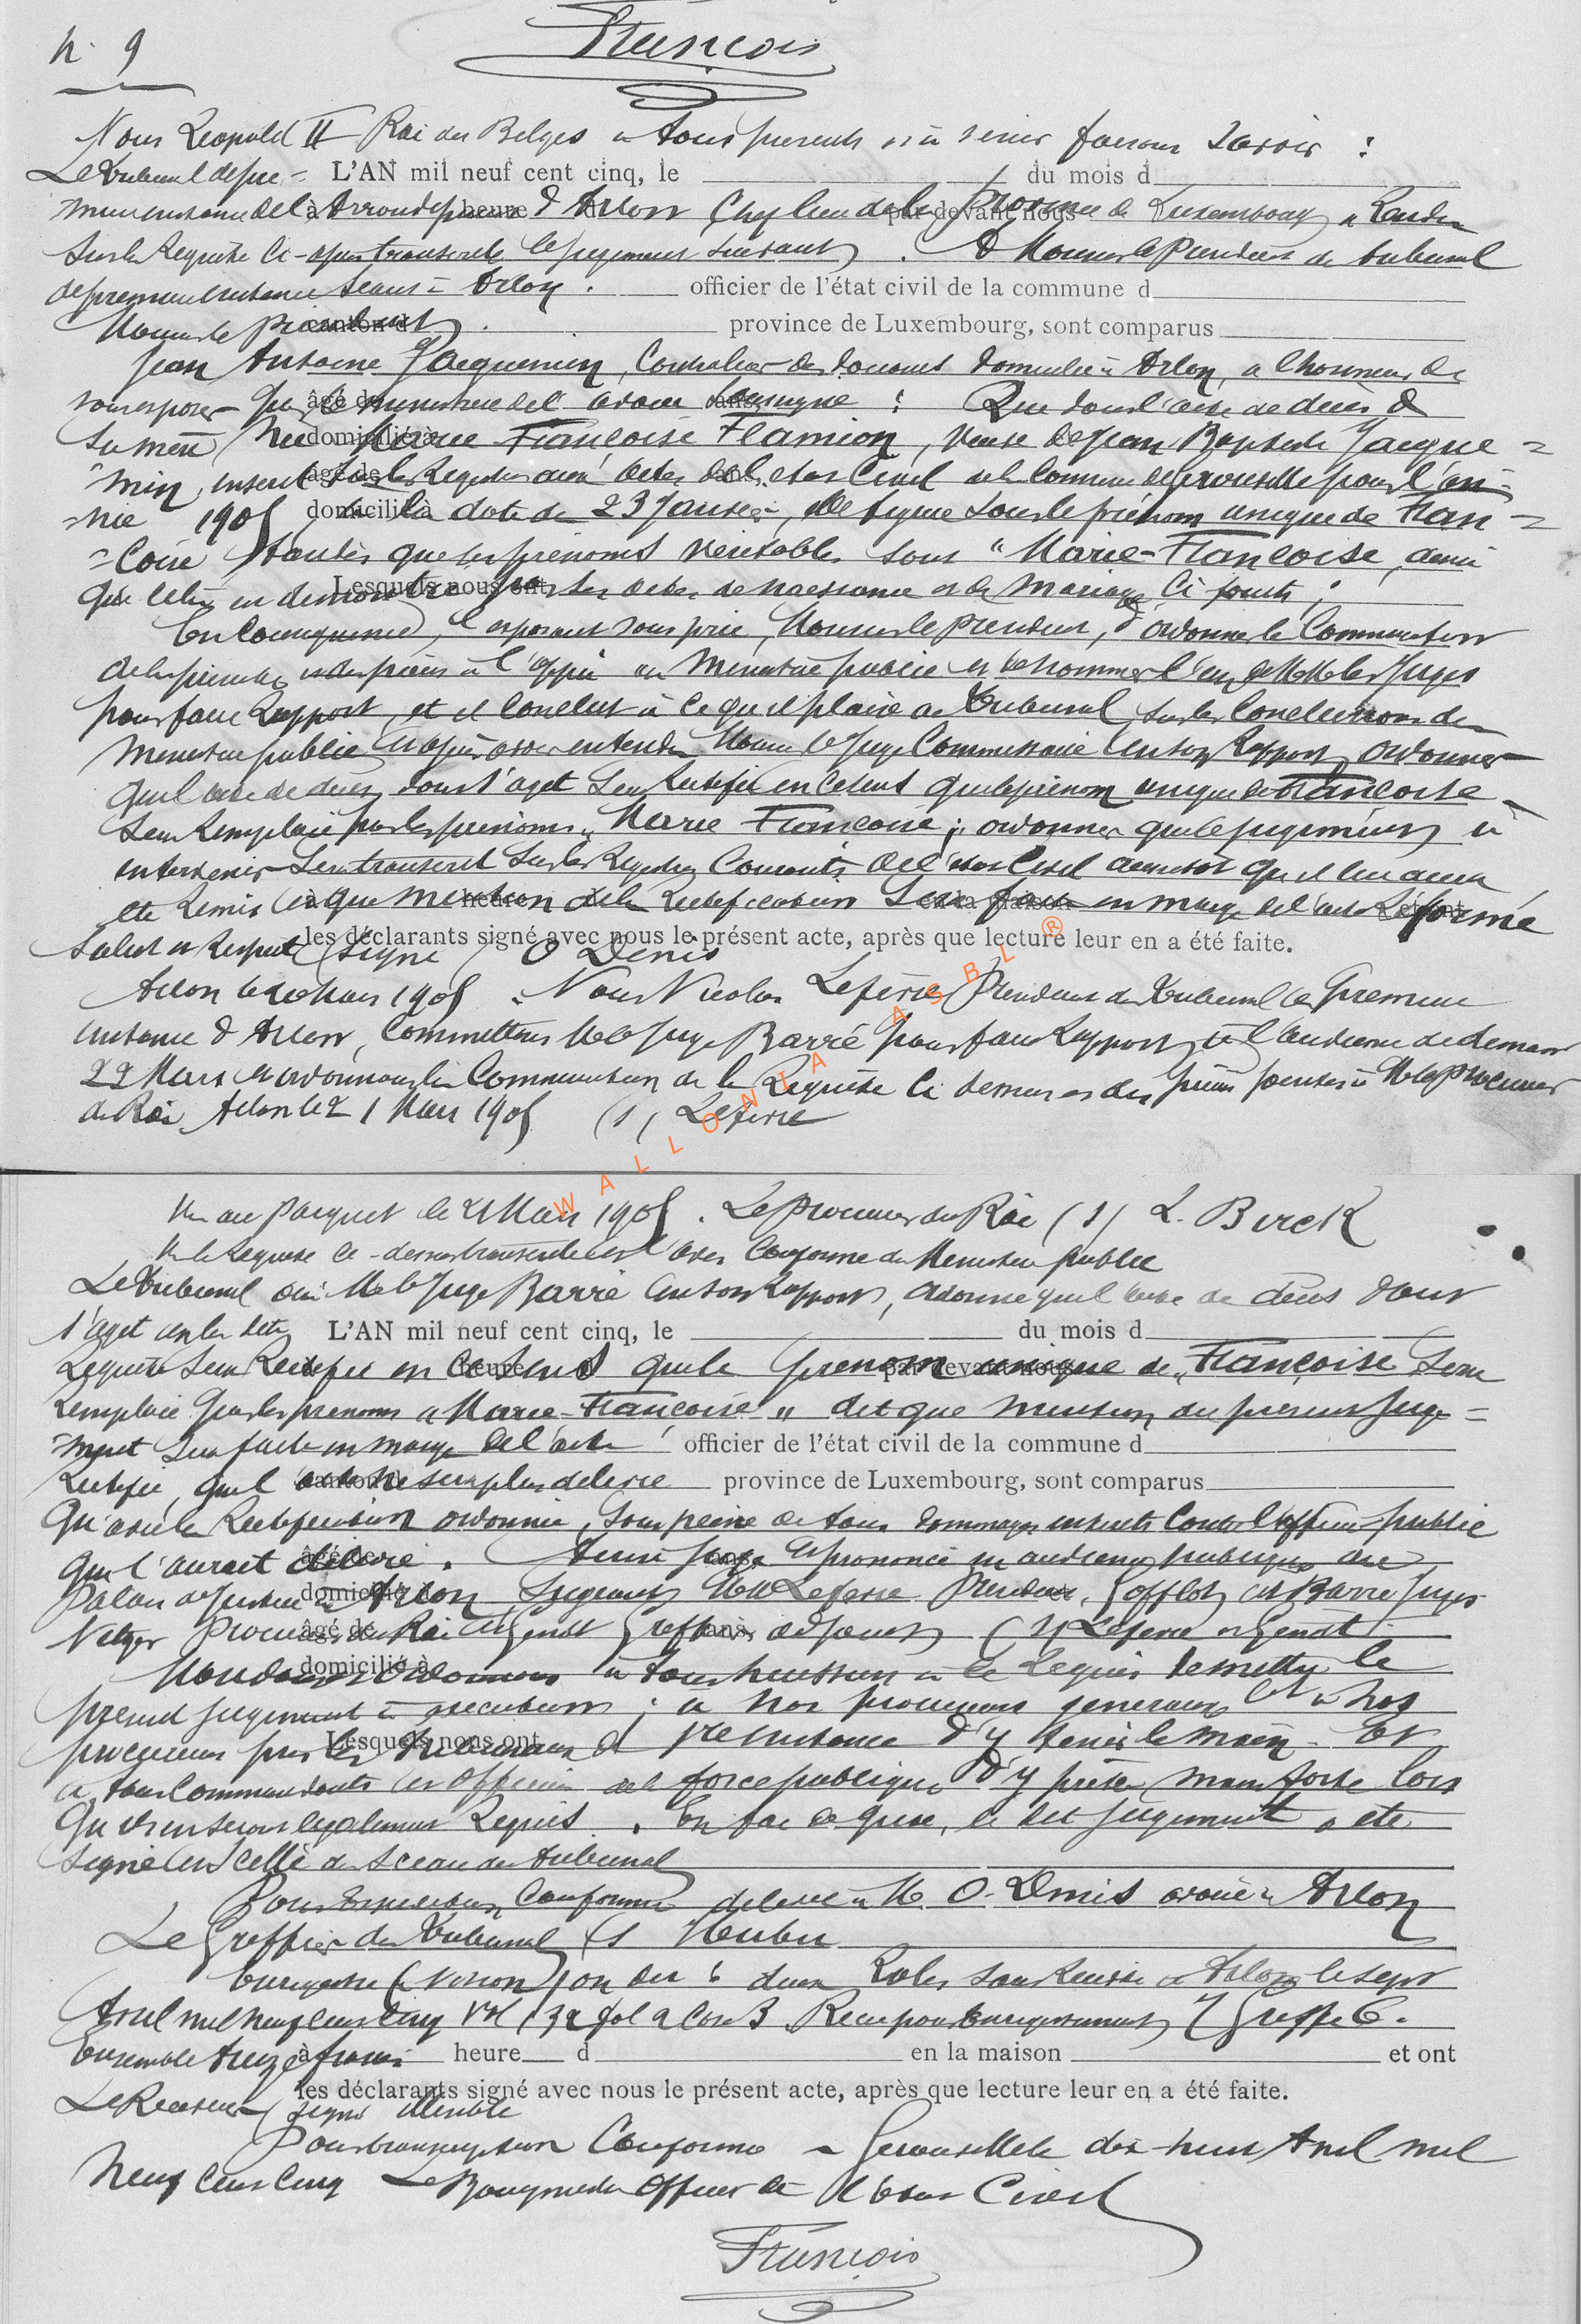 N° 9
François
Nous Leopold II Roi des Belges à tous presents et à venir faisons savoir :
Le tribunal de pre= L'AN mil neuf cent cinq, le du mois d
miere instance de l'Arrondissement d'Arlon Chef lieu de la Province de Luxembourg a rendu
à heure d par devant nous
sur la Requête ci-après transcrite le jugement suivant . A Monsieur le President du tribunal
de premiere instance séant à Arlon . officier de l'état civil de la commune d
Monsieur le President . canton d province de Luxembourg, sont comparus
Jean Antoine Jacquemin, Controleur des douanes domicilié à Arlon, a l'honneur de
vous exposer âgé de ministere de l'avoué soussigné : Que dans l'acte de décès de
ans,
sa mère Marie Françoise Flamion, veuve de Jean Baptiste Jacque=
domicilié à
min, inscrit sur les Registres aux actes de l'etat Civil de la Commune de Gerouville pour l'an=
âgé de ans,
née 1905 à la date du 23 Janvier, elle figure sous le prénom unique de Fran=
domicilié à
=coise tandis que les prénoms veritables sont "Marie-Françoise, ainsi
Lesquels nous ont
que cela est demontré par les actes de naissance et de mariage ci joints ;
En consequence, l'exposant vous prie, Monsieur le President, d'ordonner la Communication
de la presente et des pièces à l'appui au Ministère public et de nommer l'un de MM les Juges
pour faire Rapport, et il conclut à ce qu'il plaise au tribunal, sur les Conclusions du
Ministère public et après avoir entendu Monsieur le Juge Commissaire en son Rapport, ordonner
que l'acte de décès dont s'agit sera Rectifié en ce sens que le prénom unique de Françoise
sera Remplacé par les prenoms "Marie Françoise ;" ordonner que le jugement à
intervenir sera transcrit sur les Registres Courants de l'etat Civil aussitot qu'il lui aura
été Remis et que mention de la Rectification sera faite en marge de l'acte Réformé
à heure d en la maison et ont
Salut et Respect (signé) O Denis
les déclarants signé avec nous le présent acte, après que lecture leur en a été faite.
Arlon le 20 Mars 1905 . Nous Nicolas Lefèvre President du Tribunal de Premiere
instance d'Arlon, Commettons M le Juge Barré pour faire Rapport à l'audience de demain
22 Mars et ordonnons la Communication de la Requête ci dessus et des pièces jointes à M le Procureur
du Roi Arlon le 21 Mars 1905 (s) Lefevre
WALLONIA ASBL ®
Vu au Parquet le 21 Mars 1905 . Le Procureur du Roi (s) L. Birck
Vu la Requete ci-dessus transcrite et l'avis Conforme du Ministere public
Le tribunal oui M le Juge Barré en son Rapport, ordonne que l'acte de décès dont
s'agit en la dite L'AN mil neuf cent cinq, le du mois d
Requête sera Rectifié en ce sens que le prenom unique de "Françoise sera
à heure d par devant nous
Remplacé par les prenoms "Marie-Françoise" dit que mention du present juge=
ment sera faite en marge de l'acte officier de l'état civil de la commune d
Rectifié, que l'acte ne sera plus delivré province de Luxembourg, sont comparus
canton d
qu'avec la Rectification ordonnée, sous peine de tous dommages interets contre l'officier public
qui l'aurait délivré . Ainsi jugé et prononcé en audience publique au
âgé de ans,
Palais de Justice à Arlon Siégeant MM Lefevre President, Gofflot et Barré Juges
domicilié à
Procureur du Roi et Genot Greffier adjoint (s) Lefevre et Genot
âgé de ans,
Mandons et ordonnons à tous huissiers à ce requis de mettre le
domicilié à
present jugement à execution ; à nos procureurs generaux et à nos
procureurs près les tribunaux de 1re instance d'y tenir la main . Et
Lesquels nous ont
à tous Commandants et Officiers de la force publique d'y preter main forte lors
qu'ils en seront legalement Requis . En foi de quoi, le dit jugement a été
signé et scellé du Sceau du tribunal
Pour Expedition Conforme delivré à M. O. Denis avoué à Arlon
Le Greffier du tribunal (s
Enregistré sans Renvoi à Arlon le sept
Avril mil neuf cent cinq Vol 132 fol 2 Case 3 Reçu pour Enregistrement 7 Greffe 6 .
Ensemble treize francs à heure d en la maison et ont
les déclarants signé avec nous le présent acte, après que lecture leur en a été faite.
Le Receveur (signé illisible
Pour transcription Conforme à Gerouville le dix-huit Avril mil
neuf cent cinq Le Bourgmestre Officier de l'etat Civil
François